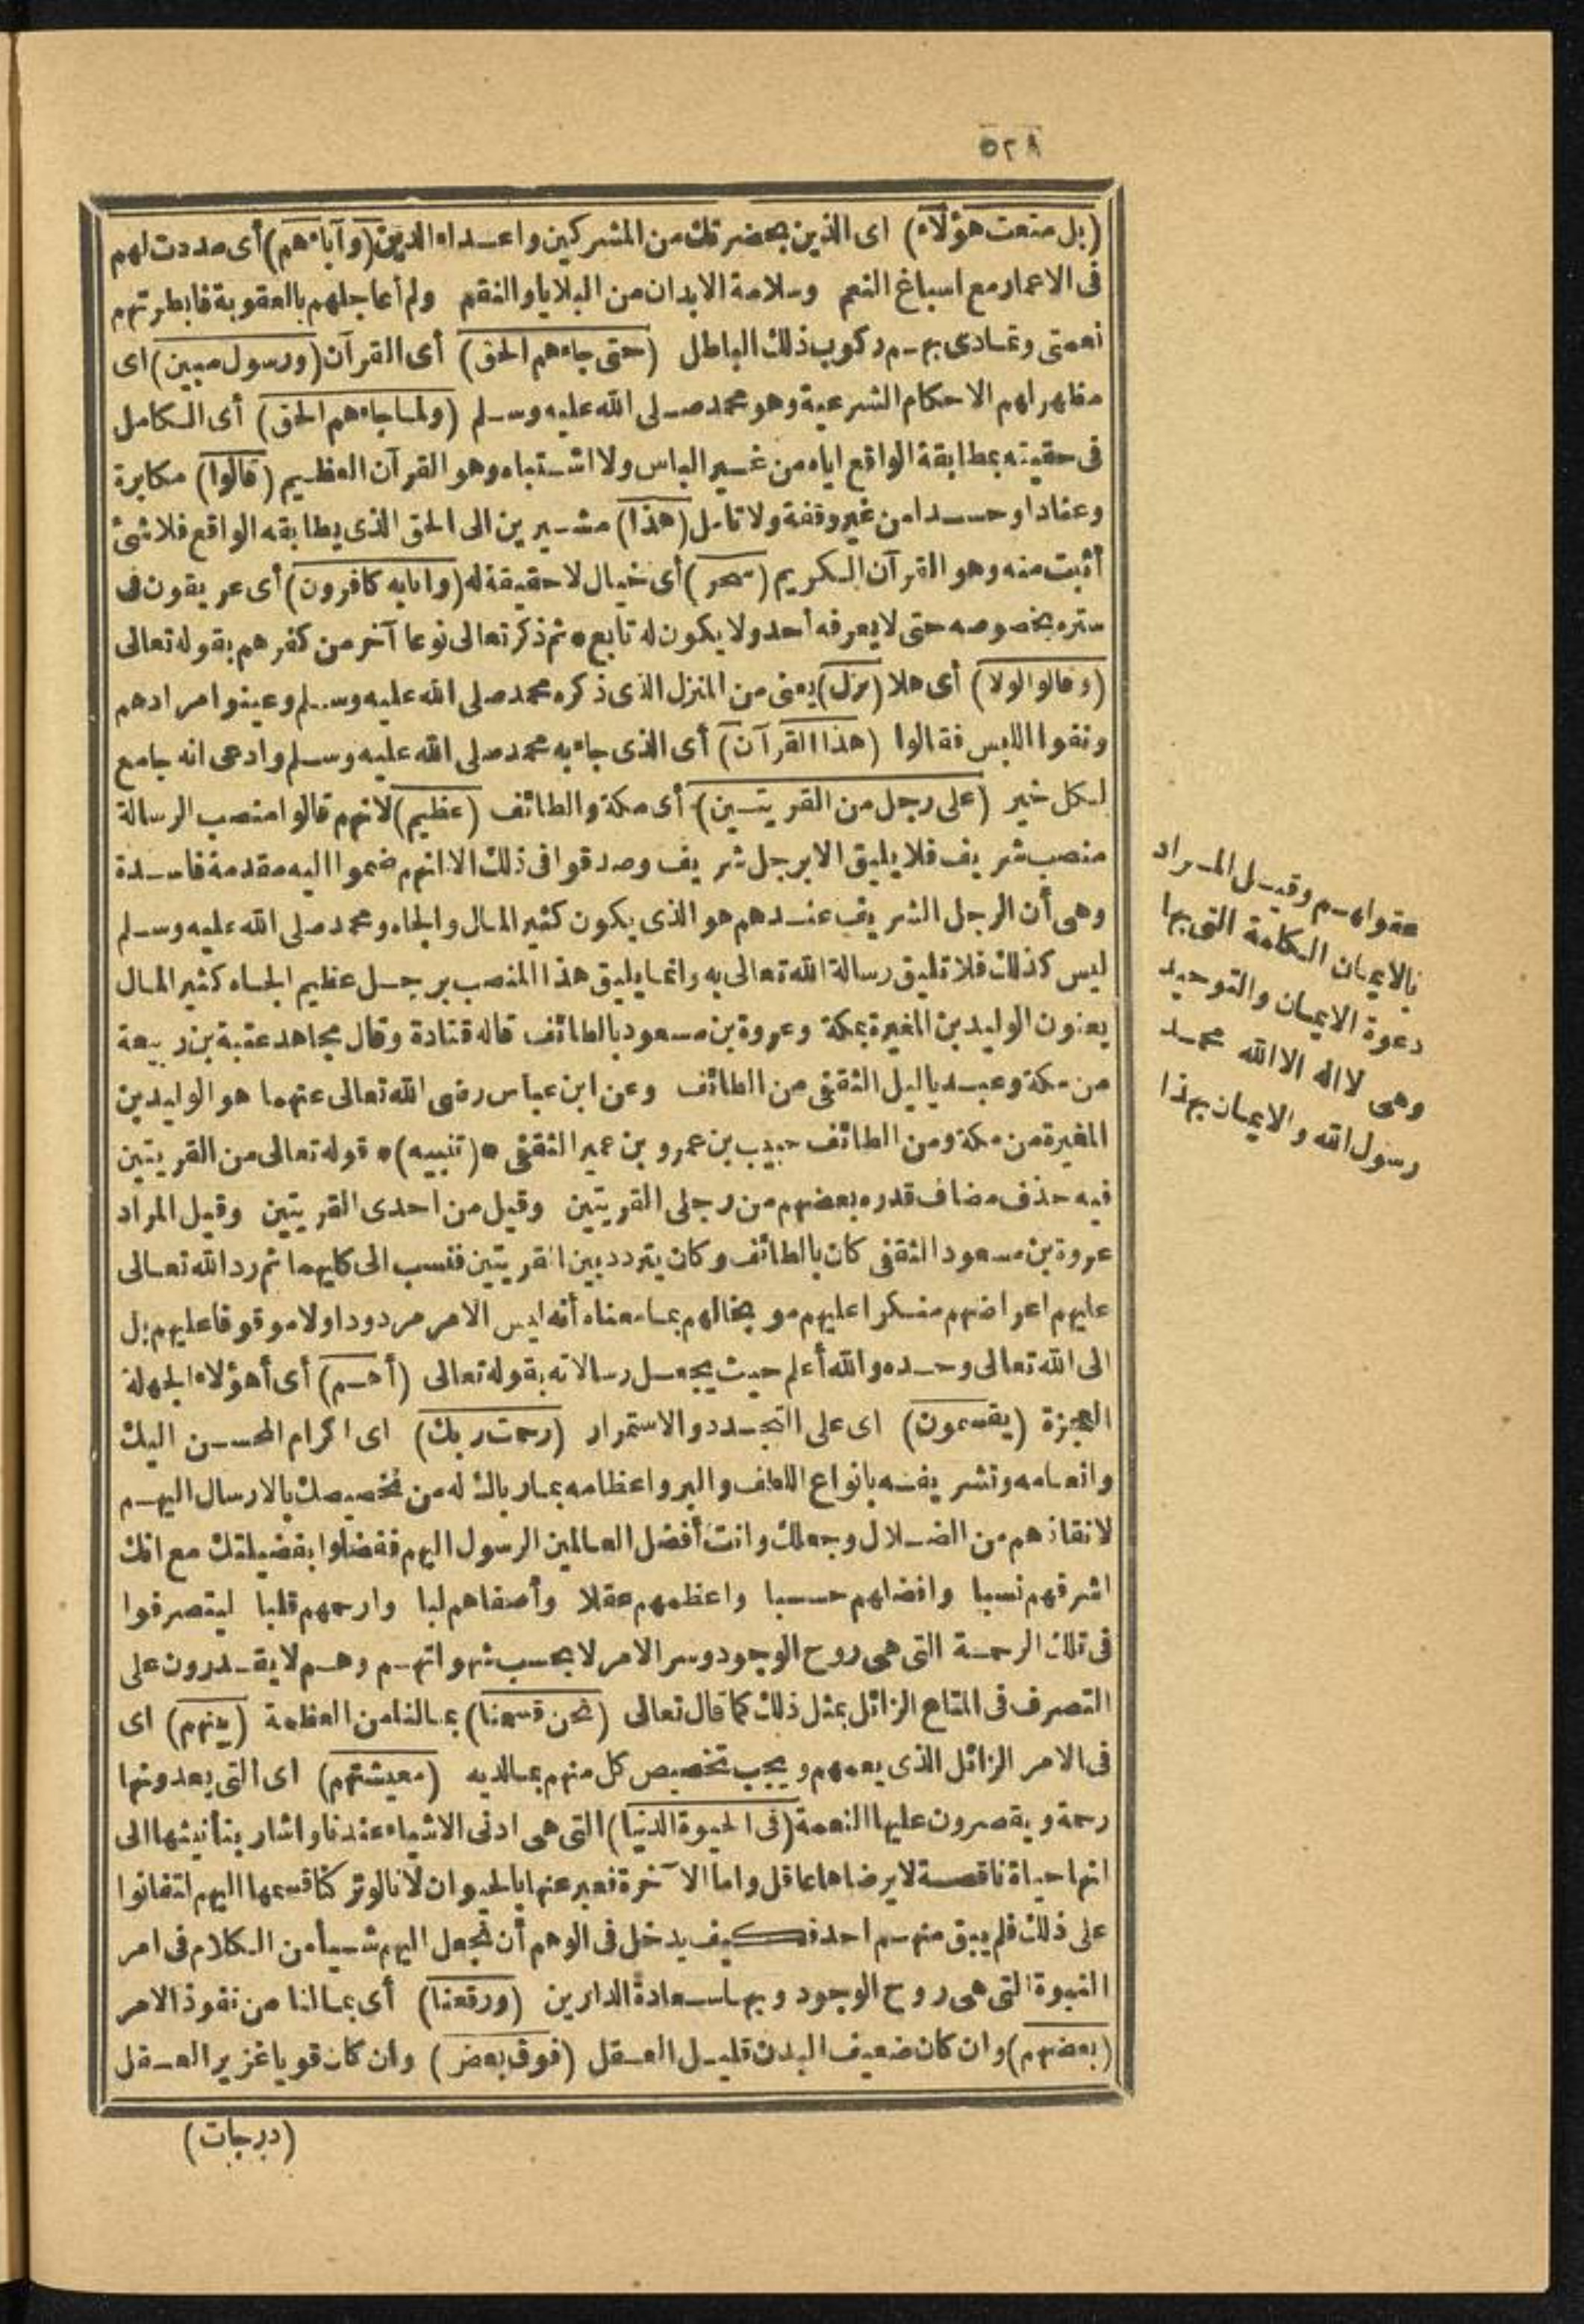 ٥٢٨
(بل متعت هؤلاء) اى الذين بحضرتك من المشركين واعداء الدين (وآباءهم) أى مددت لهم
فى الاعمار مع اسباغ النعم وسلامة الابدان من البلايا والنقم ولم أعاجلهم بالعقوبة فابطرتهم
نعمتى وتمادى بهم ركوب ذلك الباطل (حتى جاءهم الحق) أى القرآن (ورسول مبين) اى
مظهر لهم الاحكام الشرعية وهو محمد صلى الله عليه وسلم (ولما جاءهم الحق) أى الكامل
فى حقيته بمطابقة الواقع اياه من غير الباس ولا اشتباه وهو القرآن العظيم (قالوا) مكابرة
وعنادا وحسدا من غير وقفة ولا تأمل (هذا) مشيرين الى الحق الذى يطابقه الواقع فلا شئ
أثبت منه وهو القرآن الكريم (سحر) أى خيال لا حقيقة له (وانابه كافرون) أى عريقون فى
ستره بخصوصه حتى لا يعرفه أحد ولا يكون له تابع * ثم ذكر تعالى نوعا آخر من كفرهم بقوله تعالى
(وقالوا لولا) أى هلا (نزل) يعنى من المنزل الذى ذكره محمد صلى الله عليه وسلم وعينوا مرادهم
ونفوا اللبس فقالوا (هذا القرآن) أى الذى جاء به محمد صلى الله عليه وسلم وادعى انه جامع
لكل خير (على رجل من القريتين) أى مكة والطائف (عظيم) لانهم قالوا منصب الرسالة
منصب شريف فلا يليق الا برجل شريف وصدقوا فى ذلك الا انهم ضموا اليه مقدمة فاسدة
وهى أن الرجل الشريف عندهم هو الذى يكون كثير المال والجاه ومحمد صلى الله عليه وسلم
ليس كذلك فلا تليق رسالة الله تعالى به وانما يليق هذا المنصب برجل عظيم الجاه كثير المال
يعنون الوليد بن المغيرة بمكة وعروة بن مسعود بالطائف قاله قتادة وقال مجاهد عتبة بن ربيعة
من مكة وعبد ياليل الثقفى من الطائف وعن ابن عباس رضى الله تعالى عنهما هو الوليد بن
المغيرة من مكة ومن الطائف حبيب بن عمرو بن عمير الثقفى * (تنبيه) * قوله تعالى من القريتين
فيه حذف مضاف قدره بعضهم من رجلى القريتين وقيل من احدى القريتين وقيل المراد
عروة بن مسعود الثقفى كان بالطائف وكان يتردد بين القريتين فنسب الى كليهما ثم رد الله تعالى
عليهم اعراضهم منكرا عليهم موبخا لهم بما معناه أنه ليس الامر مردودا ولا موقوفا عليهم بل
الى الله تعالى وحده والله أعلم حيث يجعل رسالاته بقوله تعالى (أهم) أى أهؤلاء الجهلة
العجزة (يقسمون) اى على التجدد والاستمرار (رحمت ربك) اى اكرام المحسن اليك
وانعامه وتشريفه بانواع اللطف والبر واعظامه بما رباك له من تخصيصك بالارسال اليهم
لانقاذهم من الضلال وجعلك وانت أفضل العالمين الرسول اليهم ففضلوا بفضيلتك مع انك
اشرفهم نسبا وافضلهم حسبا واعظمهم عقلا وأصفاهم لبا وارحمهم قلبا ليتصرفوا
فى تلك الرحمة التى هى روح الوجود وسر الامر لا بحسب شهواتهم وهم لا يقدرون على
التصرف فى المتاع الزائل بمثل ذلك كما قال تعالى (نحن قسمنا) بمالنا من العظمة (بينهم) اى
فى الامر الزائل الذى يعمهم ويجب تخصيص كل منهم بما لديه (معيشتهم) اى التى يعدونها
رحمة ويقصرون عليها النعمة (فى الحيوة الدنيا) التى هى ادنى الاشياء عندنا واشار بتأنيثها الى
انها حياة ناقصة لا يرضاها عاقل واما الآخرة فعبر عنها بالحيوان لانا لو تركنا قسمها اليهم لتفانوا
على ذلك فلم يبق منهم احد فكيف يدخل فى الوهم أن نجعل اليهم شيأ من الكلام فى امر
النبوة التى هى روح الوجود وبها سعادة الدارين (ورفعنا) أى بمالنا من نفوذ الامر
(بعضهم) وان كان ضعيف البدن قليل العقل (فوق بعض) وان كان قويا غزير العقل
(درجات)
عقولهم وقيل المراد
بالايمان الكلمة التى بها
دعوة الايمان والتوحيد
وهى لا اله الا الله محمد
رسول الله والايمان بهذا